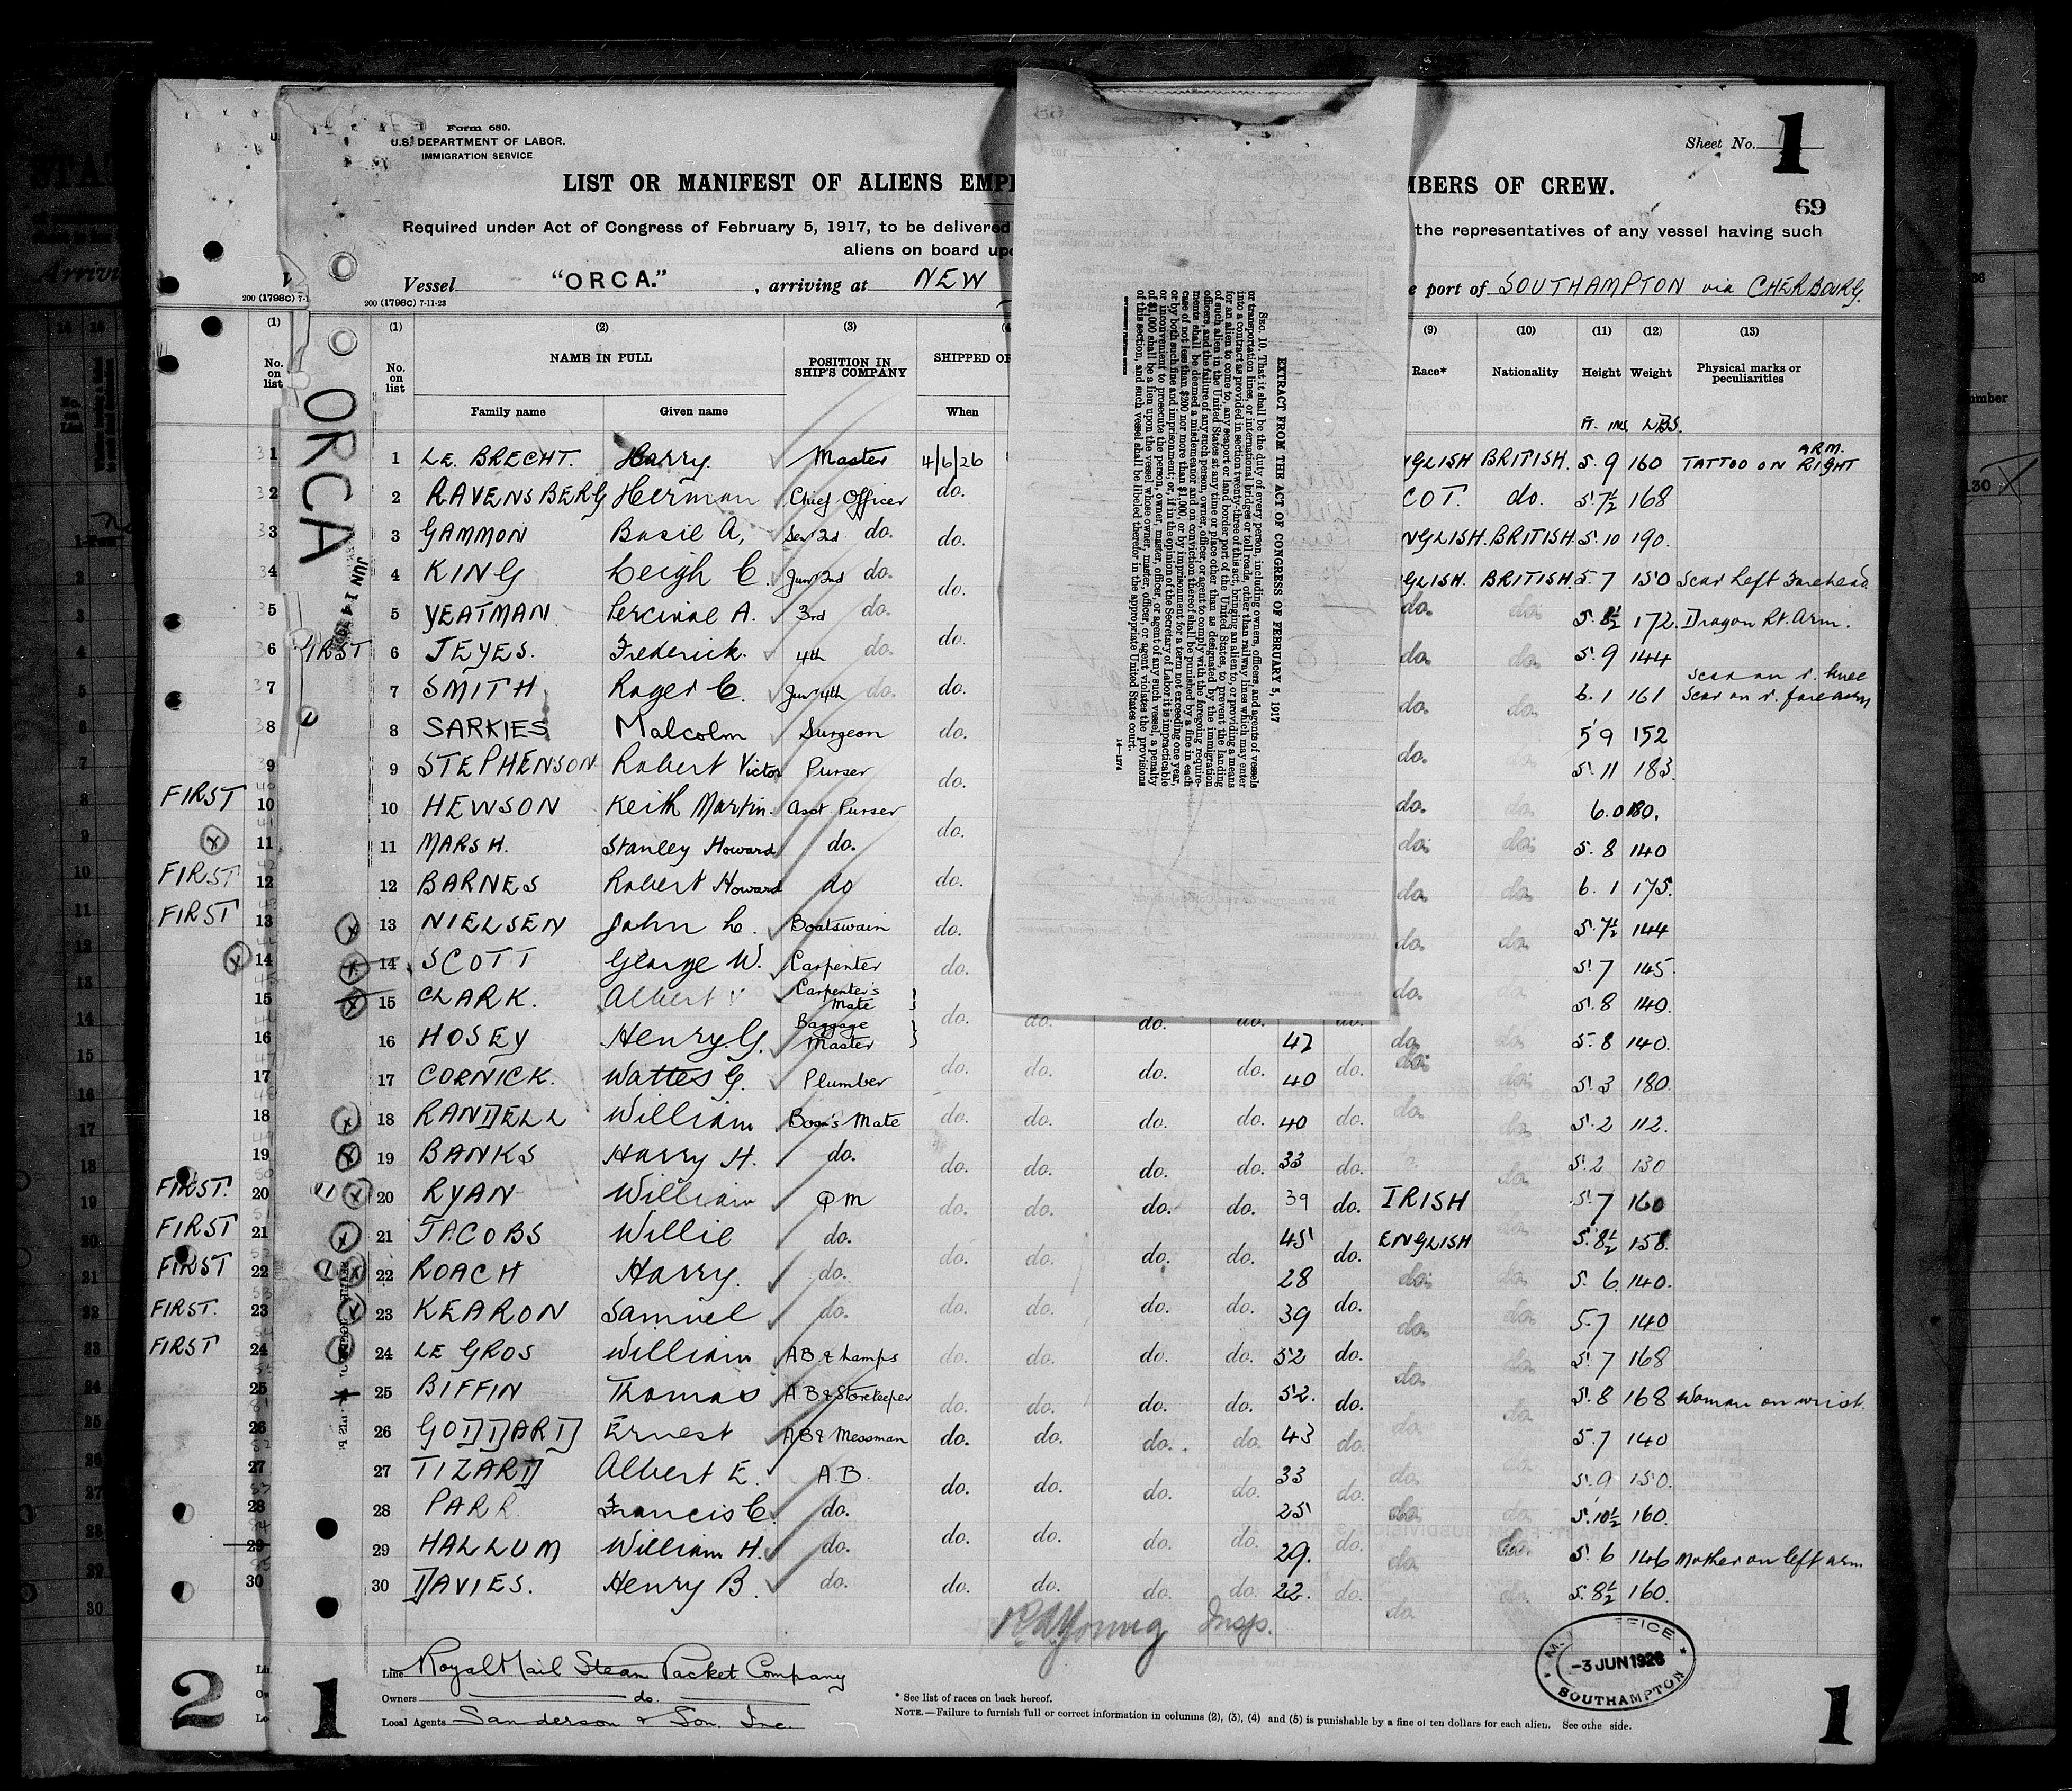 Form 680.
U.S. DEPARTMENT OF LABOR.
IMMIGRATION SERVICE
Sheet No. 1
LIST OR MANIFEST OF ALIENS EMP
MBERS OF CREW.
69
Required under Act of Congress of February 5, 1917, to be delivered
the representatives of any vessel having such
aliens on board upo
Vessel "ORCA." , arriving at NEW
e port of SOUTHAMPTON via CHERBOURG.
200 (1798C) 7-1
200 (1798C) 7-11-23
(1) (1) (2) (3) (9) (10) (11) (12) (13)
No. on list No. on list NAME IN FULL POSITION IN SHIP'S COMPANY SHIPPED OR Race* Nationality Height Weight Physical marks or peculiarities
Family name Given name When
Ft. ins. LBS.
ORCA
1 LE. BRECHT. Harry. Master 4/6/26 GLISH BRITISH. 5. 9 160 TATTOO ON RIGHT ARM.
2 RAVENSBERG Herman Chief Officer do. COT. do. 5. 7½ 168
3 GAMMON Basil A, Sen 2nd do. do. NGLISH. BRITISH. 5. 10 190.
4 KING Leigh C. Jun 2nd do. do. GLISH. BRITISH. 5. 7 150 Scar Left Forehead
5 YEATMAN Percival A. 3rd do. do. do. do. 5. 8½ 172. Dragon Rt. Arm.
FIRST 6 JEYES. Frederick. 4th do. do. do. do. 5. 9 144
7 SMITH Roger C. Jun 4th do. do. do. do. 6. 1 161 Scar on r. knee Scar on r. forearm
8 SARKIES Malcolm Surgeon do. 5 9 152
9 STEPHENSON Robert Victor Purser do. do. do. 5. 11 183.
FIRST 10 10 HEWSON Keith Martin. Asst Purser do. do. do. 6. 0 180.
11 11 MARSH. Stanley Howard do. do. do. do. 5. 8 140
FIRST 12 12 BARNES Robert Howard do do. do. do. 6. 1 175.
FIRST 13 13 NIELSEN John L. Boatswain do. do. do. 5. 7½ 144
14 14 SCOTT George W. Carpenter do. do. do. 5. 7 145.
15 15 CLARK. Albert V Carpenter's Mate do. do. do. 5. 8 140.
16 16 HOSEY Henry. G. Baggage Master do. do. do. 47 do. do. 5. 8 140.
17 17 CORNICK. Wattes G. Plumber do. do. do. do. 40 do. do. do. 5. 3 180.
18 18 RANDELL William Bosn's Mate do. do. do. do. 40 do. do. do. 5. 2 112.
19 19 BANKS Harry H. do. do. do. do. do. 33 do. do. 5. 2 130
FIRST. 20 20 RYAN William QM do. do. do. do. 39 do. IRISH 5. 7 160
FIRST 21 21 JACOBS Willie do. do. do. do. do. 45 do. ENGLISH do. 5. 8½ 158.
FIRST 22 22 ROACH Harry. do. 28 do. do. 5. 6 140.
FIRST. 23 23 KEARON Samuel do. do. do. do. do. 39 do. do. do. 5. 7 140
FIRST 24 24 LE GROS William AB & Lamps do. do. do. do. 52 do. do. do. 5. 7 168
25 25 BIFFIN Thomas AB & Storekeeper do. do. do. do. 52. do. do. do. 5. 8 168 Woman on wrist.
26 26 GODDARD Ernest AB & Messman do. do. do. do. 43 do. do. do. 5. 7 140
27 27 TIZARD Albert E. A.B. do. do. do. do. 33 do. do. do. 5. 9 150.
28 28 PARR Francis C. do. 25 do. do. 5. 10½ 160.
29 29 HALLUM William H. do. do. do. do. do. 29. do. do. do. 5. 6 146 Mother on left arm
30 30 DAVIES. Henry B. do. do. do. do. do. 22. do. do. do. 5. 8½ 160.
R.A. Young Insp.
Line Royal Mail Steam Packet Company
Owners do.
Local Agents Sanderson & Son. Inc.
* See list of races on back hereof.
NOTE.—Failure to furnish full or correct information in columns (2), (3), (4) and (5) is punishable by a fine of ten dollars for each alien. See othe side.
-3 JUN 1926
SOUTHAMPTON
2
1
1
EXTRACT FROM THE ACT OF CONGRESS OF FEBRUARY 5, 1917
SEC. 10. That it shall be the duty of every person, including owners, officers, and agents of vessels
or transportation lines, or international bridges or toll roads, other than railway lines which may enter
into a contract as provided in section twenty-three of this act, bringing an alien to, or providing a means
for an alien to come to, any seaport or land border port of the United States, to prevent the landing
of such alien in the United States at any time or place other than as designated by the immigration
officers, and the failure of any such person, owner, officer, or agent to comply with the foregoing require-
ments shall be deemed a misdemeanor and on conviction thereof shall be punished by a fine in each
case of not less than $200 nor more than $1,000, or by imprisonment for a term not exceeding one year,
or by both such fine and imprisonment; or, if in the opinion of the Secretary of Labor it is impracticable
or inconvenient to prosecute the person, owner, master, officer, or agent of any such vessel, a penalty
of $1,000 shall be a lien upon the vessel whose owner, master, officer, or agent violates the provisions
of this section, and such vessel shall be libeled therefor in the appropriate United States court.
14—1274